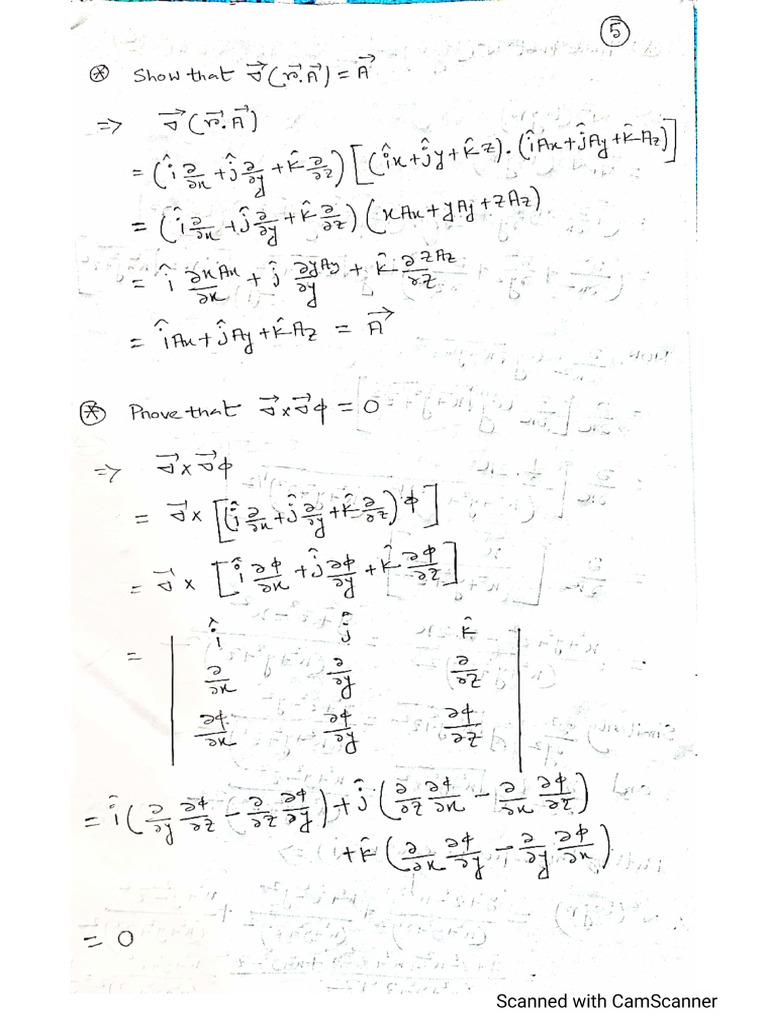 ⑤
⊛ Show that ∇⃗(r⃗.A⃗) = A⃗
=> ∇⃗(r⃗.A⃗)
= (î ∂/∂x + ĵ ∂/∂y + k̂ ∂/∂z) [(îx + ĵy + k̂z) . (îAx + ĵAy + k̂Az)]
= (î ∂/∂x + ĵ ∂/∂y + k̂ ∂/∂z) (xAx + yAy + zAz)
= î ∂xAx/∂x + ĵ ∂yAy/∂y + k̂ ∂zAz/∂z
= îAx + ĵAy + k̂Az = A⃗
⊛ Prove that ∇⃗x∇⃗φ = 0
=> ∇⃗x∇⃗φ
= ∇⃗x [(î ∂/∂x + ĵ ∂/∂y + k̂ ∂/∂z)φ]
= ∇⃗x [î ∂φ/∂x + ĵ ∂φ/∂y + k̂ ∂φ/∂z]
= | î ĵ k̂ |
| ∂/∂x ∂/∂y ∂/∂z |
| ∂φ/∂x ∂φ/∂y ∂φ/∂z |
= î (∂/∂y ∂φ/∂z - ∂/∂z ∂φ/∂y) + ĵ (∂/∂z ∂φ/∂x - ∂/∂x ∂φ/∂z)
+ k̂ (∂/∂x ∂φ/∂y - ∂/∂y ∂φ/∂x)
= 0
Scanned with CamScanner